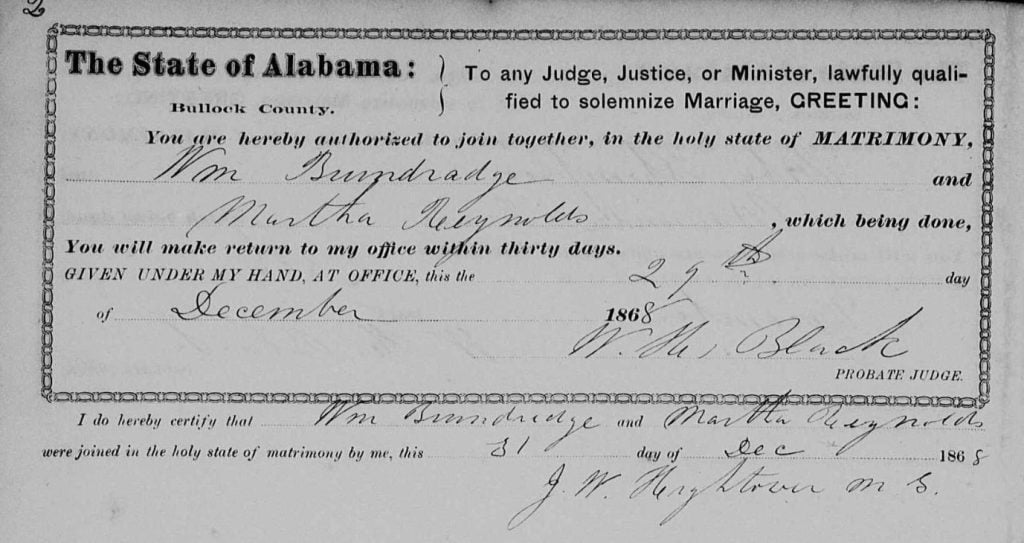 2
The State of Alabama: } To any Judge, Justice, or Minister, lawfully quali-
Bullock County. fied to solemnize Marriage, GREETING:
You are hereby authorized to join together, in the holy state of MATRIMONY,
Wm Bundradge and
Martha Reynolds, which being done,
You will make return to my office within thirty days.
GIVEN UNDER MY HAND, AT OFFICE, this the 29th day
of December 1868
W. H. Black
PROBATE JUDGE.
I do hereby certify that Wm Bundradge and Martha Reynolds
were joined in the holy state of matrimony by me, this 31 day of Dec 1868
J. W. Hightower M G.